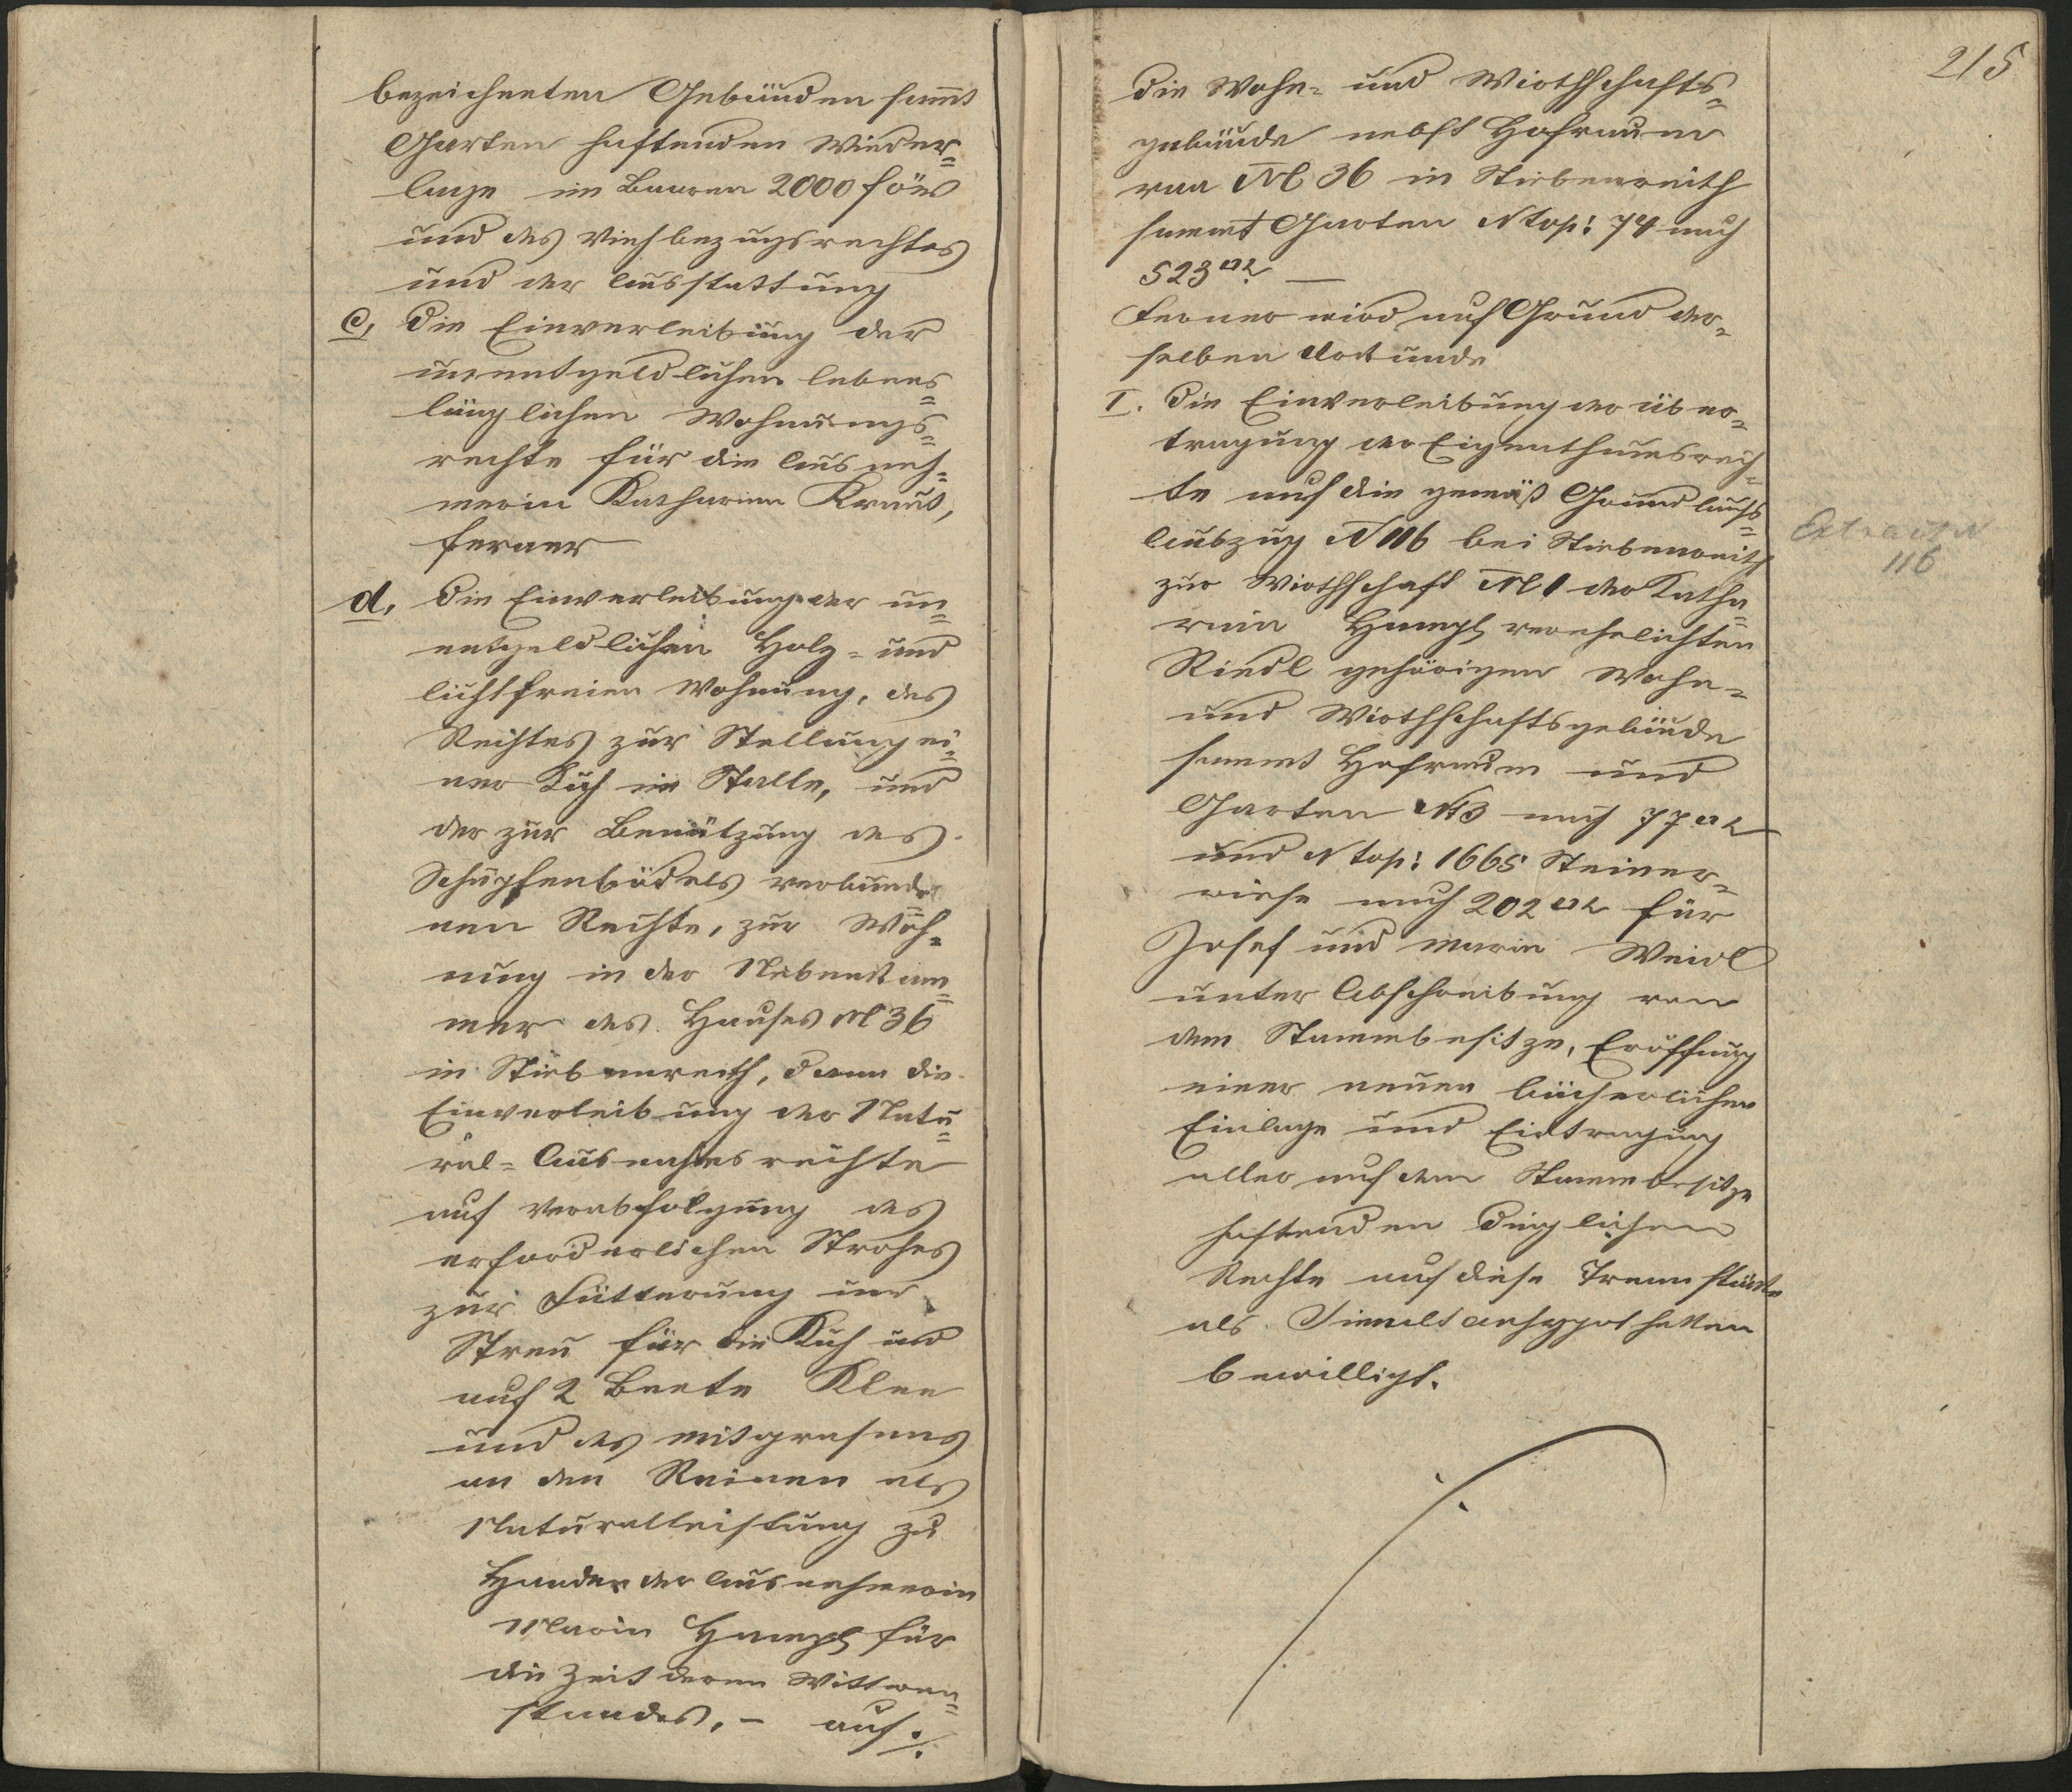 bezeichneten Gebäuden samt
Garten haftenden Wieder-
lage im Baaren 2000 f ö W
und des Viehbezugsrechtes
und der Ausstattung
c, die Einverleibung der
unentgeldlichen lebens-
länglichen Wohnungs-
rechte für die Ausneh-
merin Katharina Kraus,
ferner
d, die Einverleibung der un-
entgeldlichen Holz- und
lichtfreien Wohnung, des
Rechtes zur Stellung ei-
ner Kuh im Stalle, und
der zur Benützung des
Schupfenbödels verbunde-
nen Rechte, zur Woh-
nung in der Nebenkam-
mer des Hauses N 36
in Stiebenreith, dann die
Einverleibung der Natu-
ral-Ausnahmsrechte
auf Verabfolgung des
erforderlichen Strohes
zur Fütterung und
Streu für die Kuh und
auf 2 Beete Klee
und des Mitgrasens
an den Rainen als
Naturalleistung zu
Handen der Ausnehmerin
Maria Hampl für
die Zeit deren Wittwen-
standes, - auf ./.
215
die Wohn- und Wirthschafts-
gebäude nebst Hofraum
von N 36 in Stiebenreith
sammt Garten N top: 74 nach
523 □° —
Ferner wird auf Grund der-
selben Urkunde
I. die Einverleibung der Über-
tragung der Eigenthumsrech-
te auf die gemäß Grundbuchs-
Auszug N 116 bei Stiebenreith
zur Wirthschaft N 1 der Katha-
rina Hampl verehelichten
Riedl gehörigen Wohn-
und Wirthschaftsgebäude
sammt Hofraum und
Garten N 3 nach 77 □°
und N top: 1665 Steiner-
wiese nach 202 □° für
Josef und Maria Weidl
unter Abschreibung von
dem Stammbesitze, Eröffnung
einer neuen bücherlichen
Einlage und Eintragung
aller auf dem Stammbesitze
haftenden dinglichen
Rechte auf diese Trennstücke
als Simultanhypotheken
bewilligt.
116